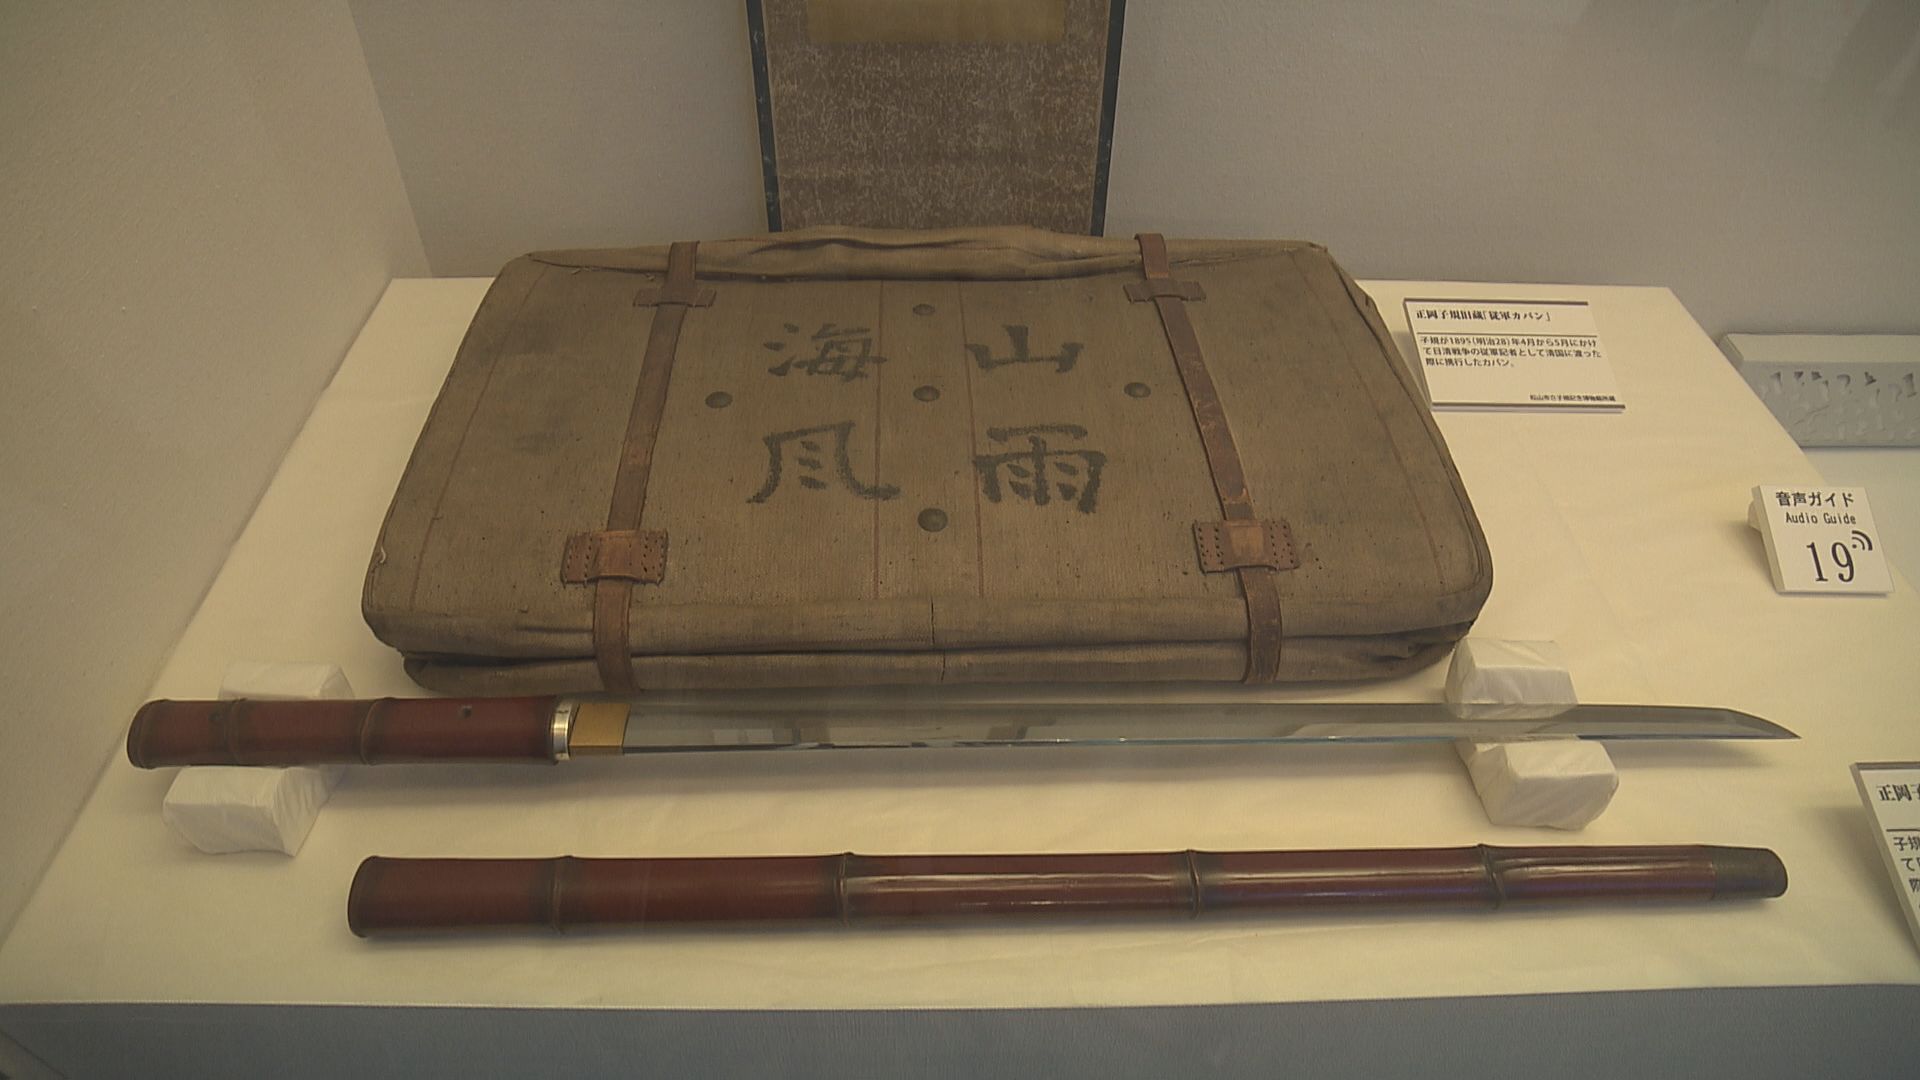 山雨
海風
正岡子規旧蔵「従軍カバン」
子規が1895(明治28)年4月から5月にかけ
て日清戦争の従軍記者として清国に渡った
際に携行したカバン。
松山市立子規記念博物館所蔵
音声ガイド
Audio Guide
19
正岡子
子規
て
際